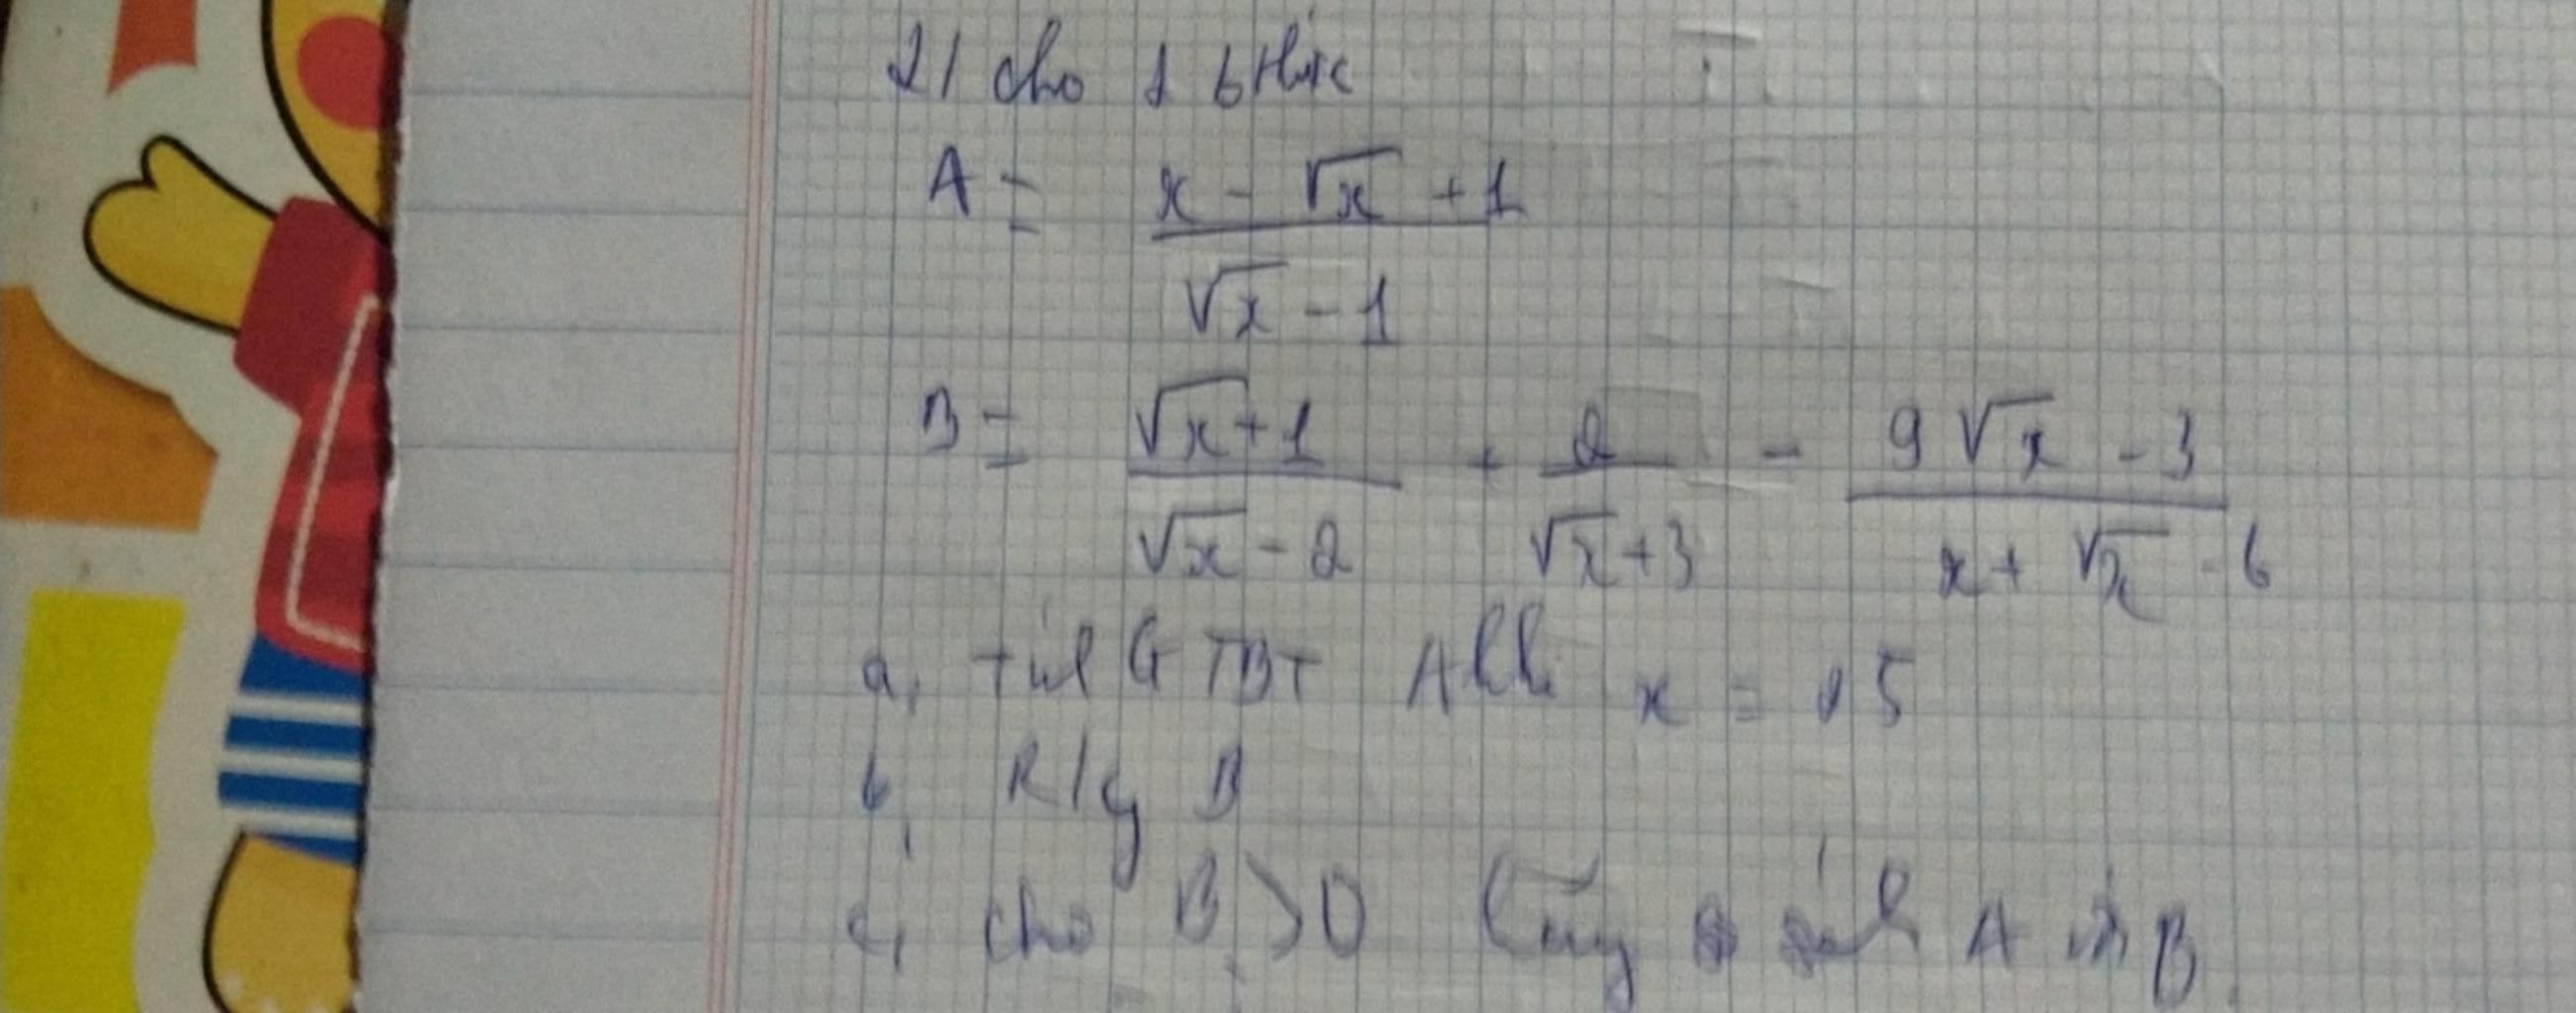 2/ cho 2 bthức
A = \frac{x - \sqrt{x} + 1}{\sqrt{x} - 1}
B = \frac{\sqrt{x} + 1}{\sqrt{x} - 2} + \frac{2}{\sqrt{x} + 3} - \frac{9\sqrt{x} - 3}{x + \sqrt{x} - 6}
a, Tính GTBT A khi x = 25
b, R/g B
c, cho B > 0 hãy so sánh A với B.